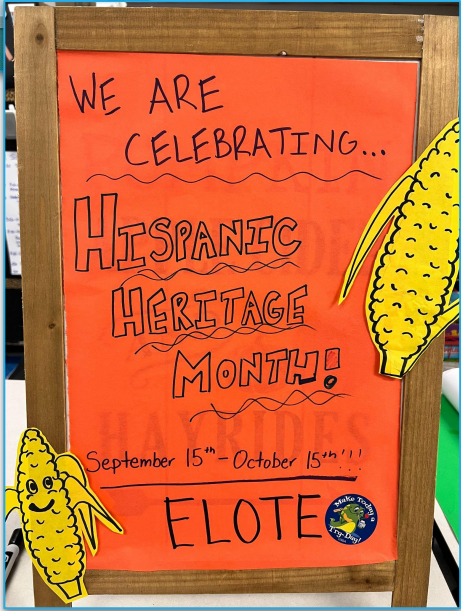 WE ARE
CELEBRATING...
HISPANIC
HERITAGE
MONTH!
September 15th - October 15th!!!
ELOTE
Make Today a
Try-Day!
HAYRIDES